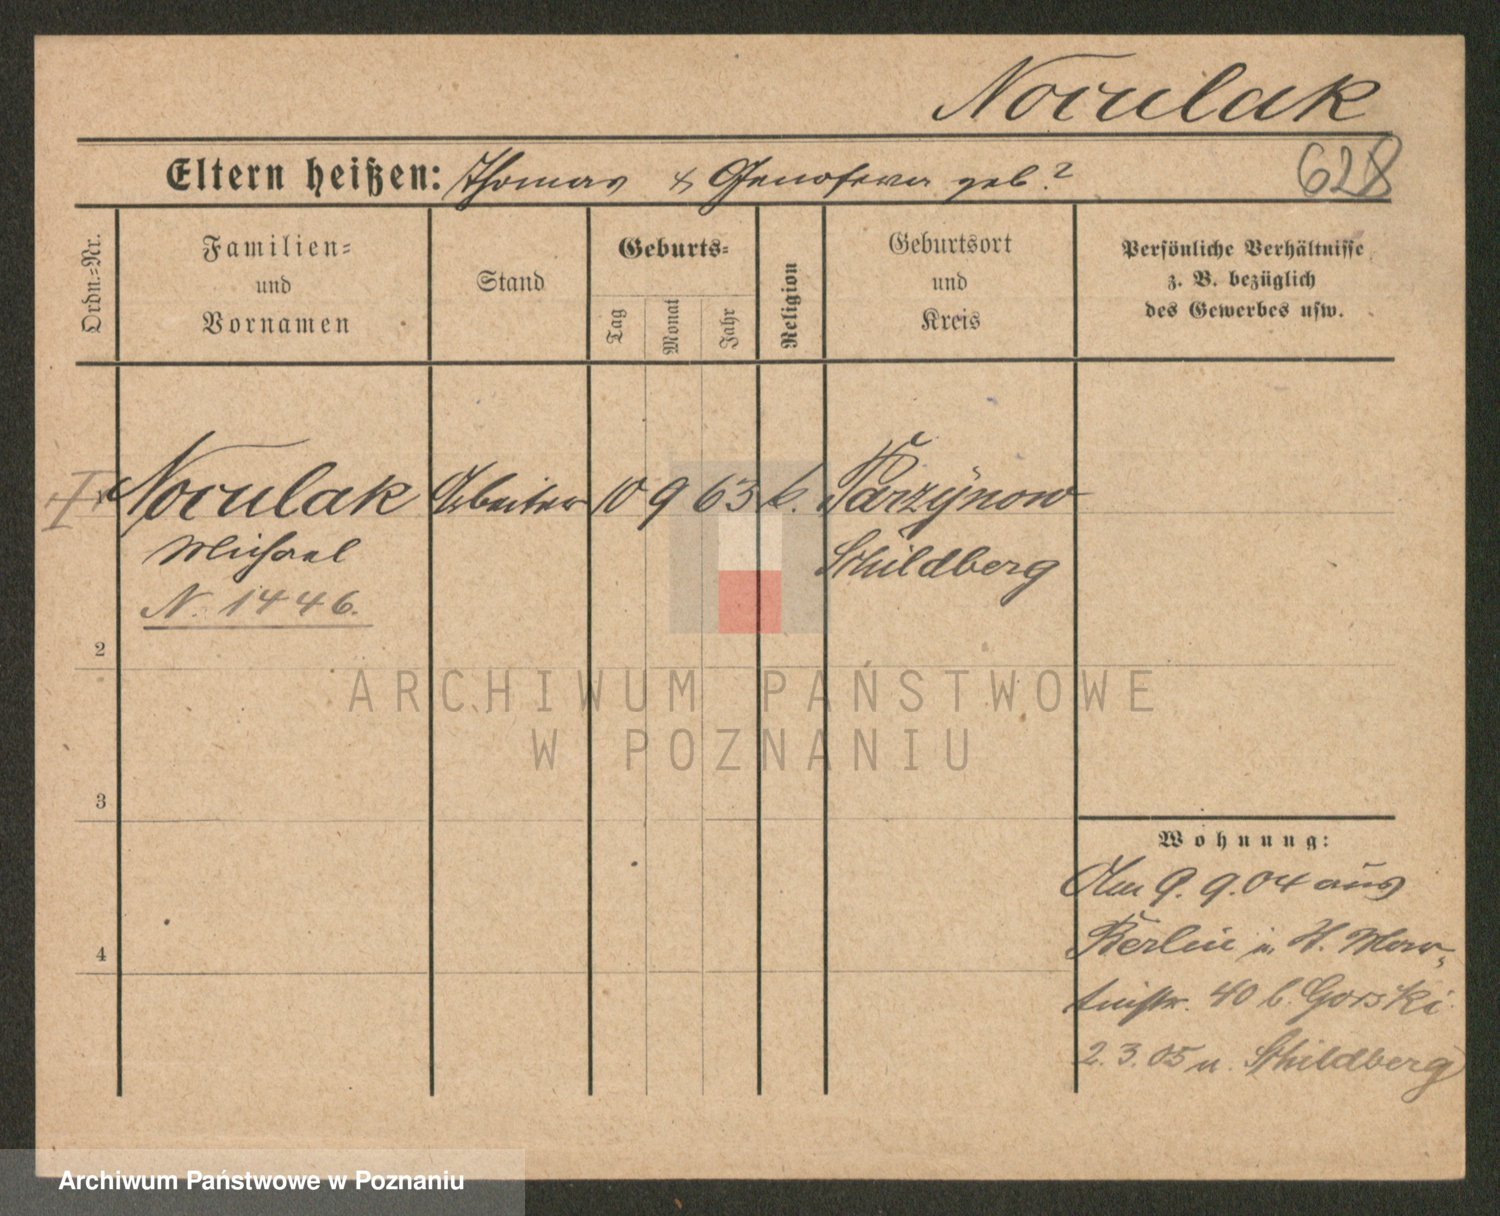 Noculak
628
Eltern heißen: Thomas & Genofeva geb?
Ordn.=Nr.
Familien=
und
Vornamen
Stand
Geburts=
Tag
Monat
Jahr
Religion
Geburtsort
und
Kreis
Persönliche Verhältnisse
z. B. bezüglich
des Gewerbes usw.
Noculak Arbeiter 10 9 63 k. Parzynow
Michael Schildberg
N. 1446.
2
3
4
ARCHIWUM PAŃSTWOWE
W POZNANIU
Wohnung:
Am 9. 9. 04 aus
Berlin n. St. Mar-
tinstr. 40 b. Gorski
2. 3. 05 n. Schildberg
Archiwum Państwowe w Poznaniu